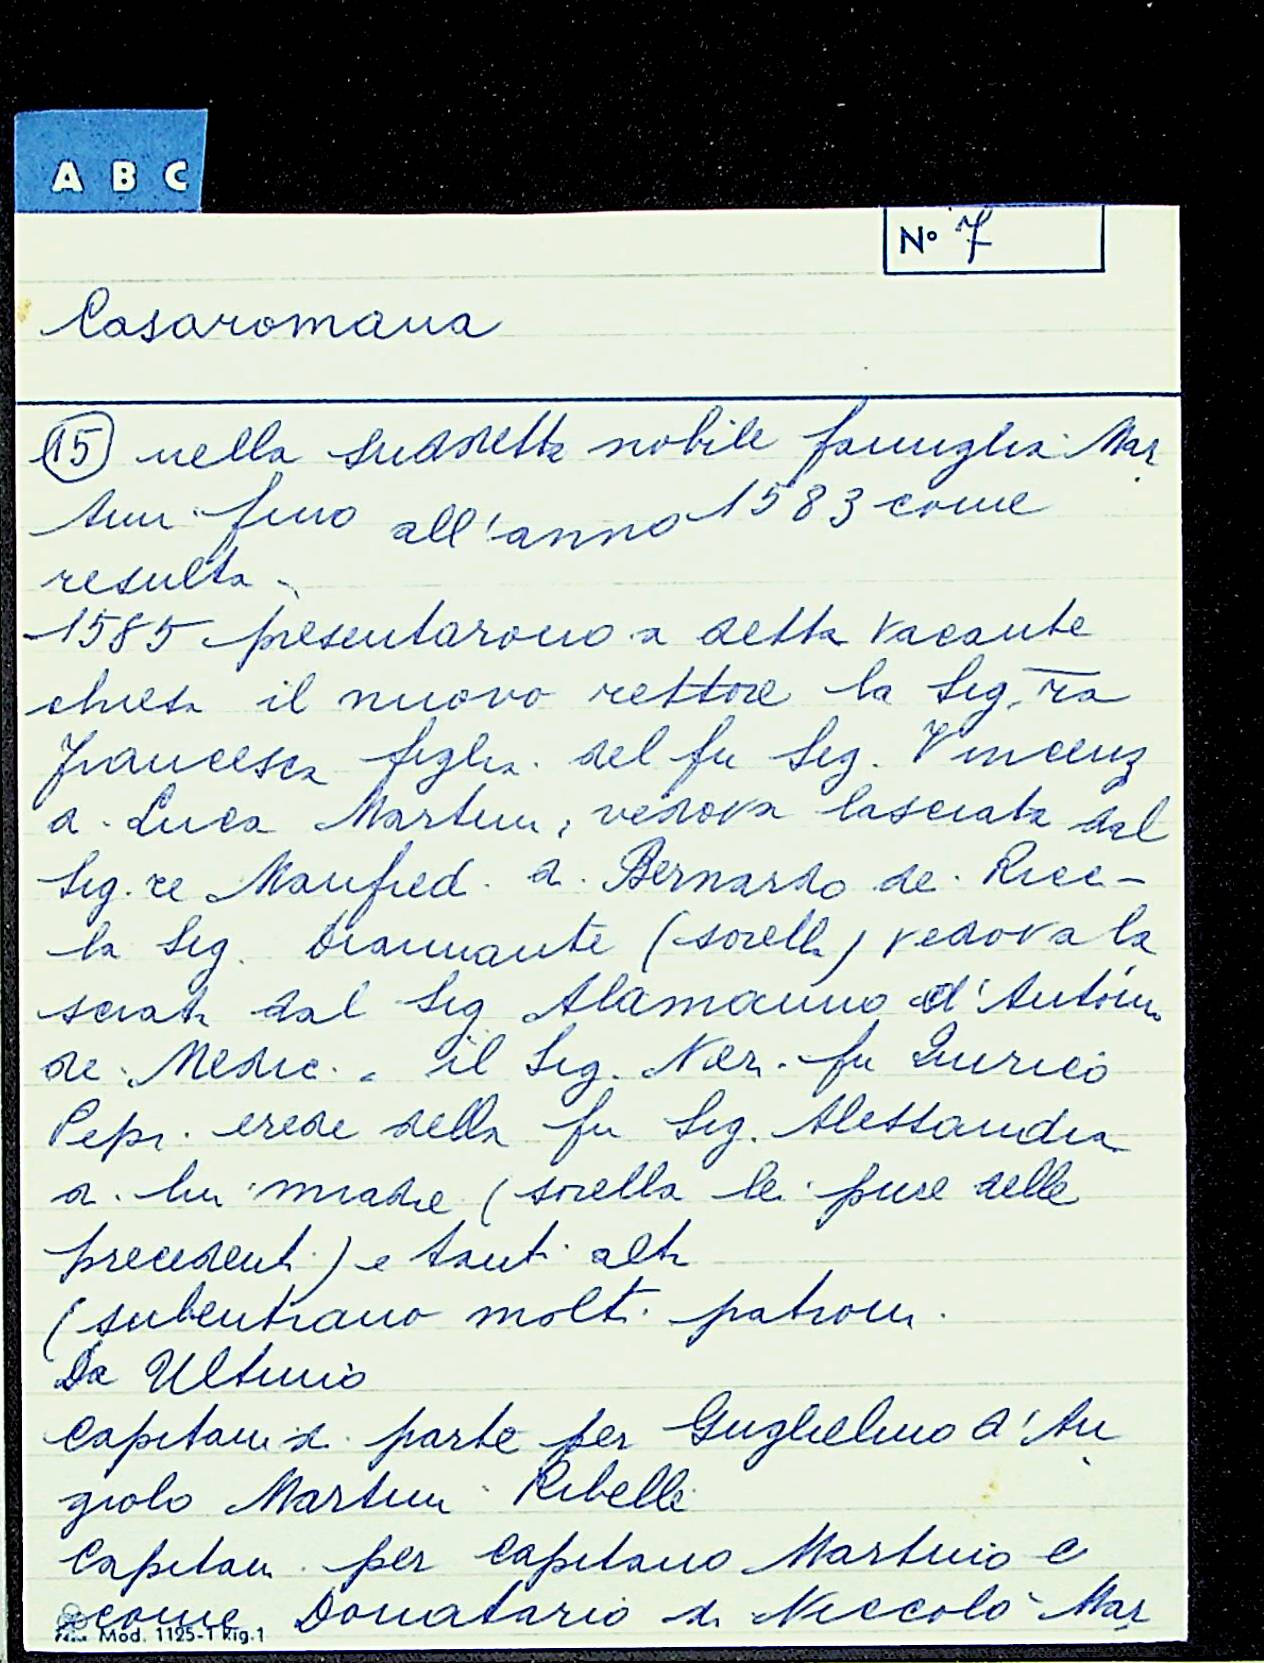 A B C
N° 7
Casaromana
(15) nella suddetta nobile famiglia Mar
tini fino all'anno 1583 come
resulta.
1585 presentarono a detta vacante
chiesa il nuovo rettore la Sig.ra
Francesca figlia del fu Sig. Vincenz
di Luca Martini, vedova lasciata dal
Sig.re Manfred. di Bernardo de Ricci-
la Sig. Diamante (sorella) vedova la
sciata dal Sig Alamanno d'Antonio
de Medici. il Sig. Neri fu Quirico
Pepi erede della fu Sig. Alessandra
di lui madre (sorella lei pure delle
precedenti) e tanti altri
(subentrano molti patroni.
Da Ultimo
Capitani di parte per Guglielmo d'An
giolo Martini Ribelli
Capitani per Capitano Martinio e
come Donatario di Niccolò Mar
Mod. 1125-1 Rig.1